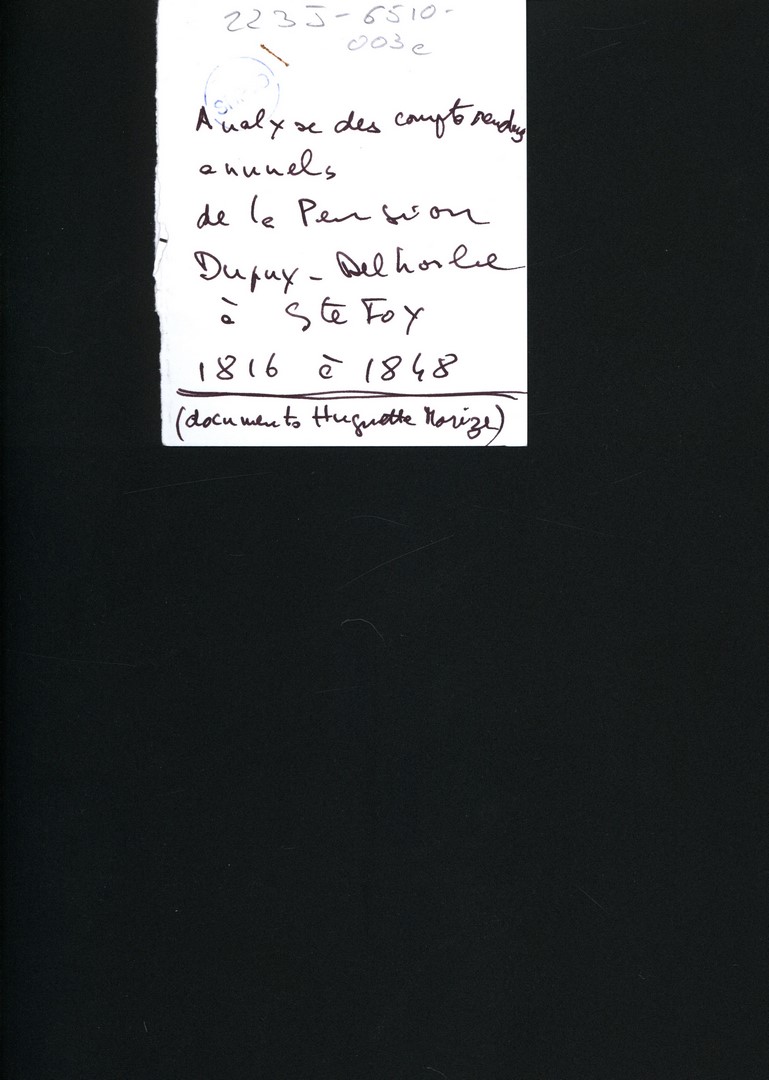 223J-6510-
003e
Analyse des compte rendus
annuels
de la Pension
Dupuy-Delhorbe
à Ste Foy
1816 à 1848
(documents Huguette Morize)